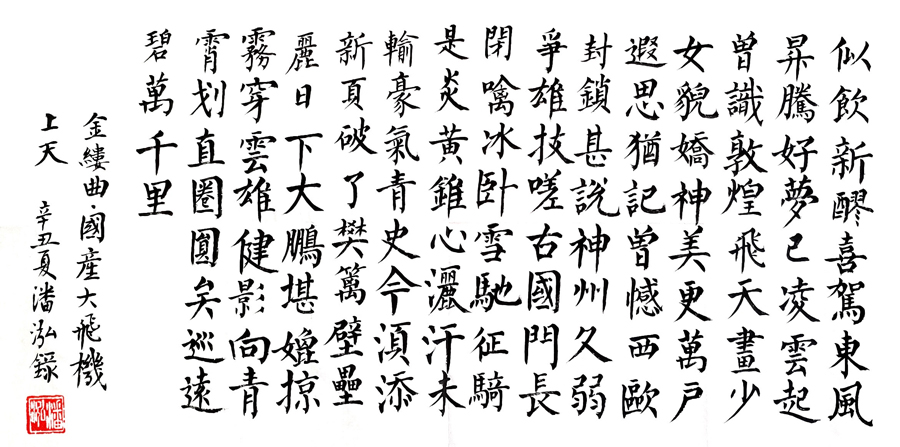 似飲新醪喜駕東風
昇騰好夢已凌雲起
曾識敦煌飛天畫少
女貌嬌神美更萬戶
遐思猶記曾憾西歐
封鎖甚説神州久弱
爭雄技嗟古國門長
閉噙冰卧雪馳征騎
是炎黃錐心灑汗未
輸豪氣青史今須添
新頁破了樊籬壁壘
麗日下大鵬堪嬗掠
霧穿雲雄健影向青
霄划直圈圓矣巡遠
碧萬千里
金縷曲·國産大飛機
上天 辛丑夏潘泓錄